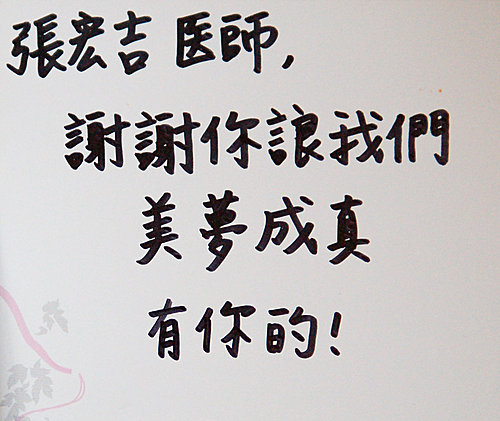 張宏吉医師,
謝謝你讓我們
美夢成真
有你的!